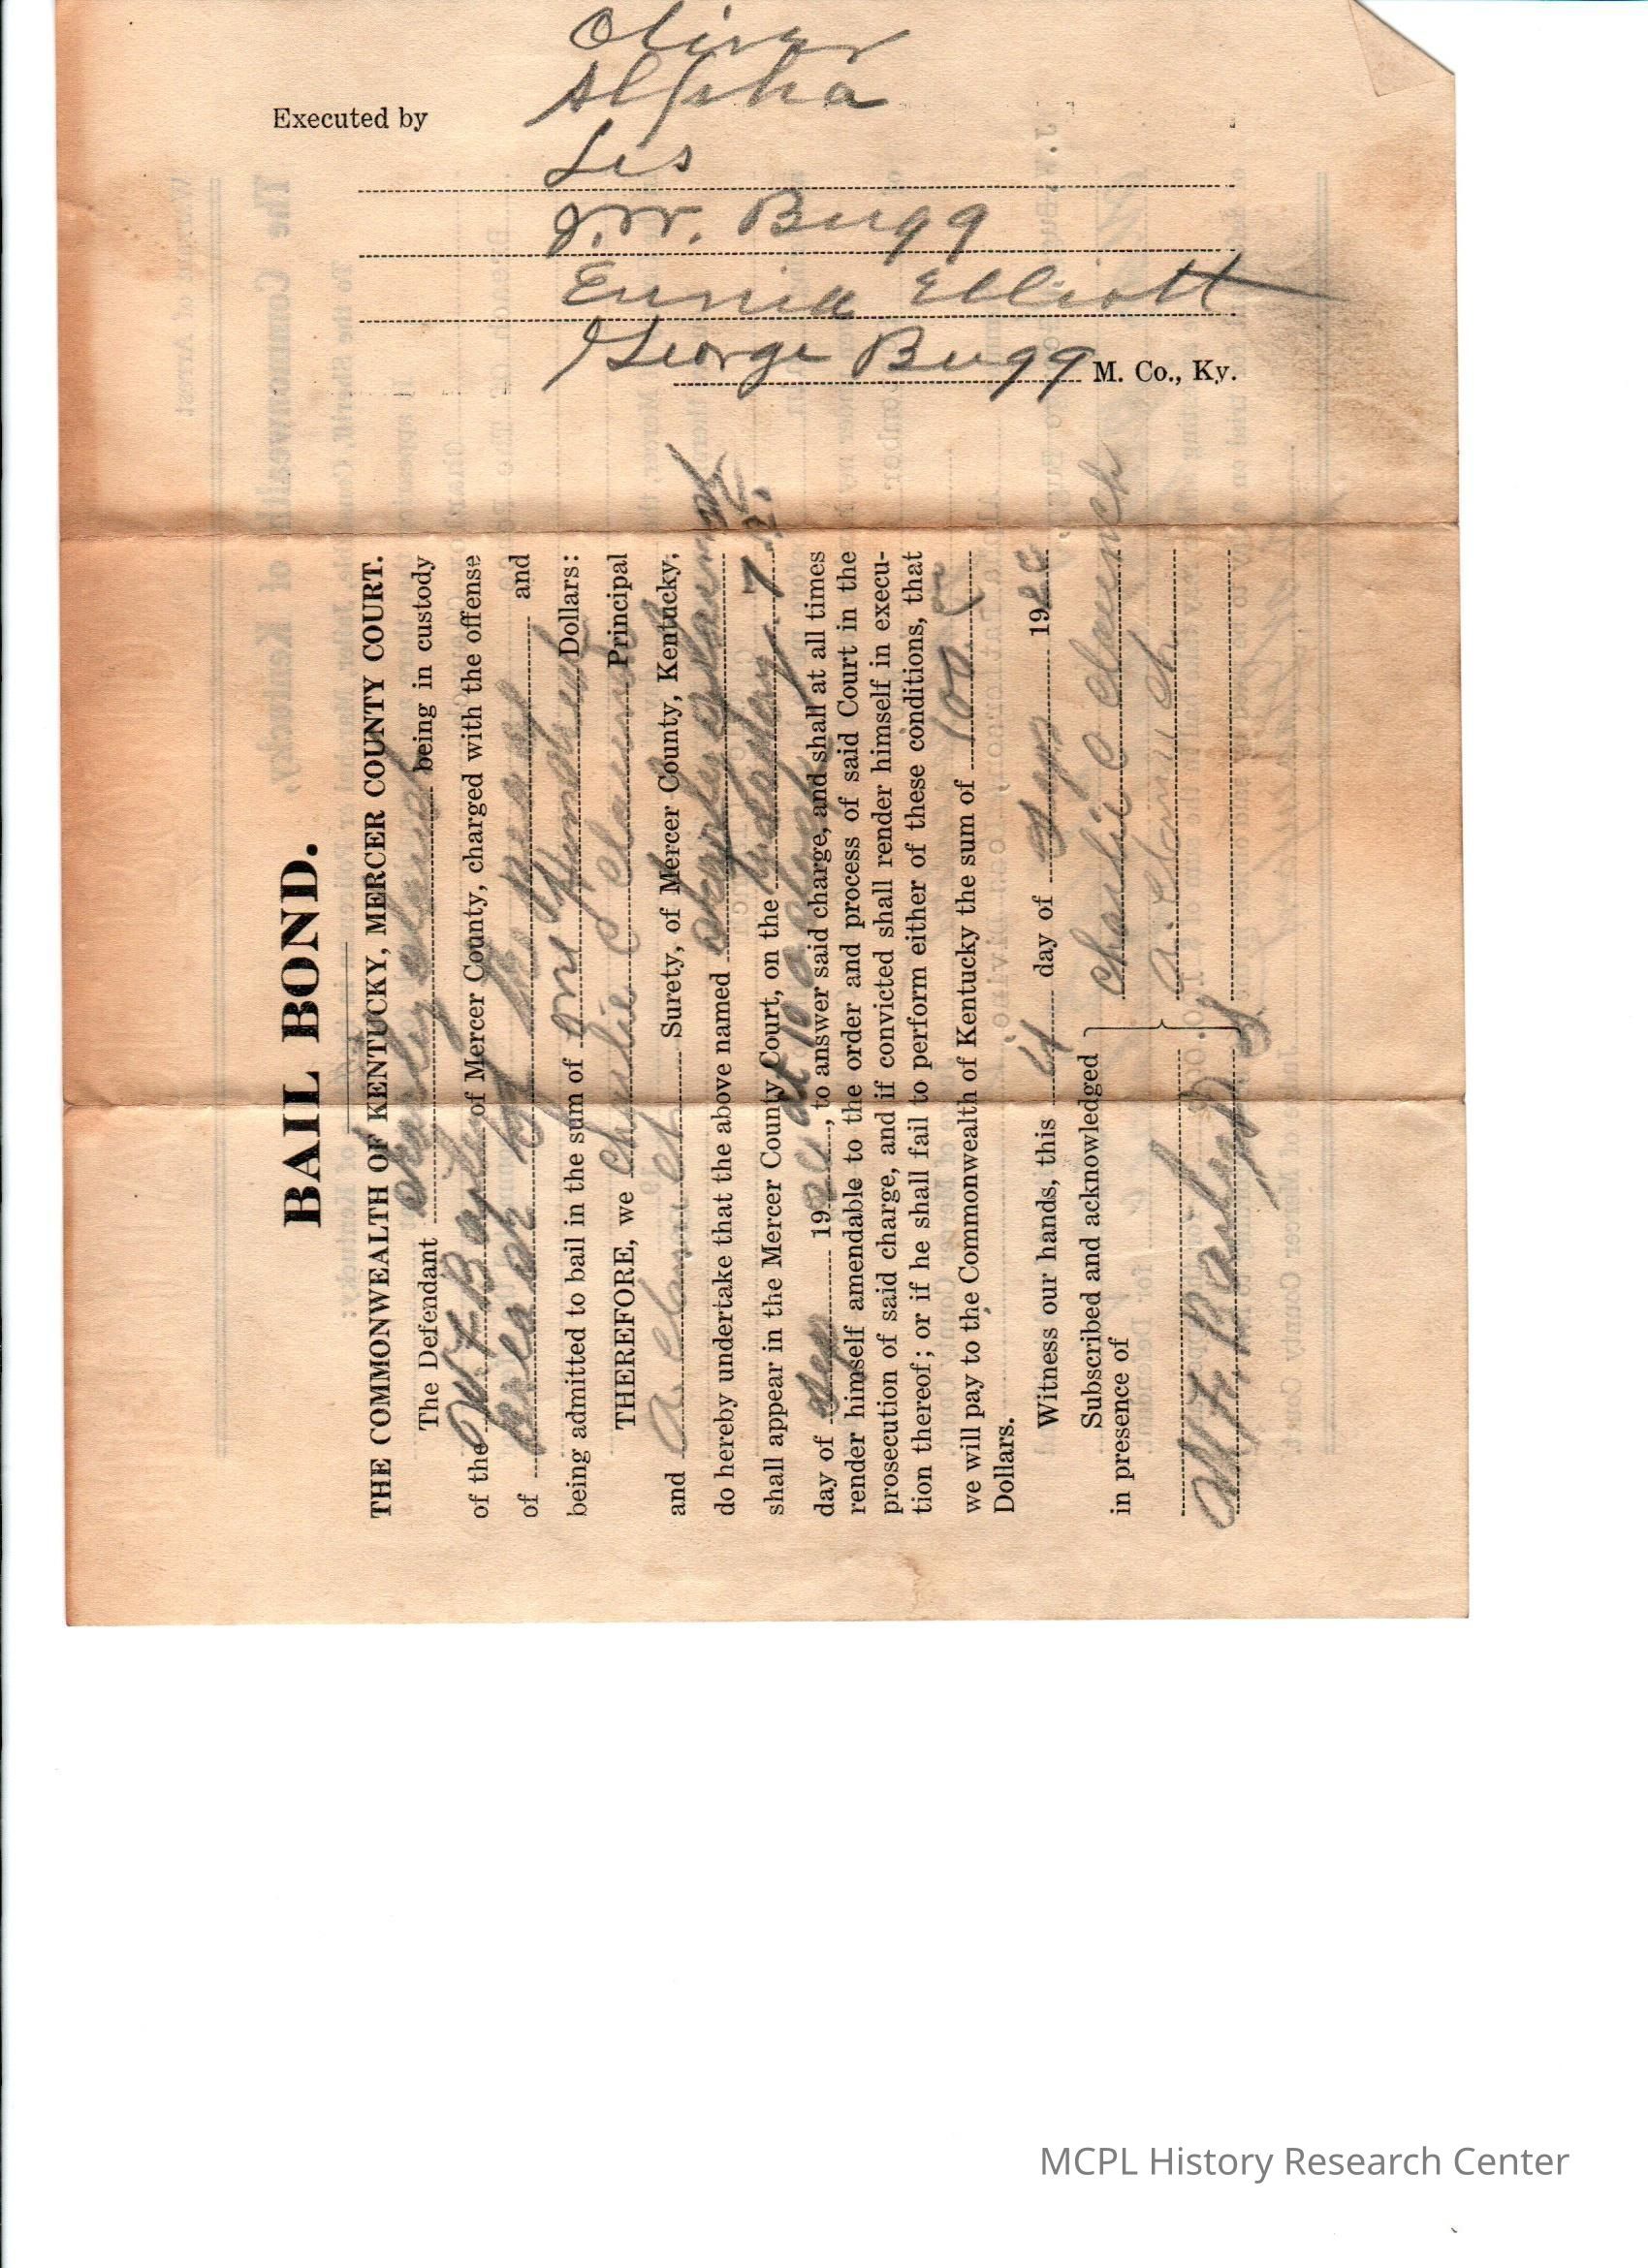 Oliver
Alpha
Executed by
Les
J. W. Bugg
Elliott
George Bugg M. Co., Ky.
BAIL BOND.
THE COMMONWEALTH OF KENTUCKY, MERCER COUNTY COURT.
The Defendant being in custody
of the W F Bayley of Mercer County, charged with the offense
of breach of the peace and
being admitted to bail in the sum of one Hundred Dollars:
THEREFORE, we Charlie C Claunch Principal
and A. Claunch Surety, of Mercer County, Kentucky,
do hereby undertake that the above named
shall appear in the Mercer County Court, on the 7
day of Sep 19 , to answer said charge, and shall at all times
render himself amendable to the order and process of said Court in the
prosecution of said charge, and if convicted shall render himself in execu-
tion thereof; or if he shall fail to perform either of these conditions, that
we will pay to the Commonwealth of Kentucky the sum of 100
Dollars.
Witness our hands, this 4 day of Sep 19
Subscribed and acknowledged
in presence of
Charlie C Claunch
A. Claunch
MCPL History Research Center